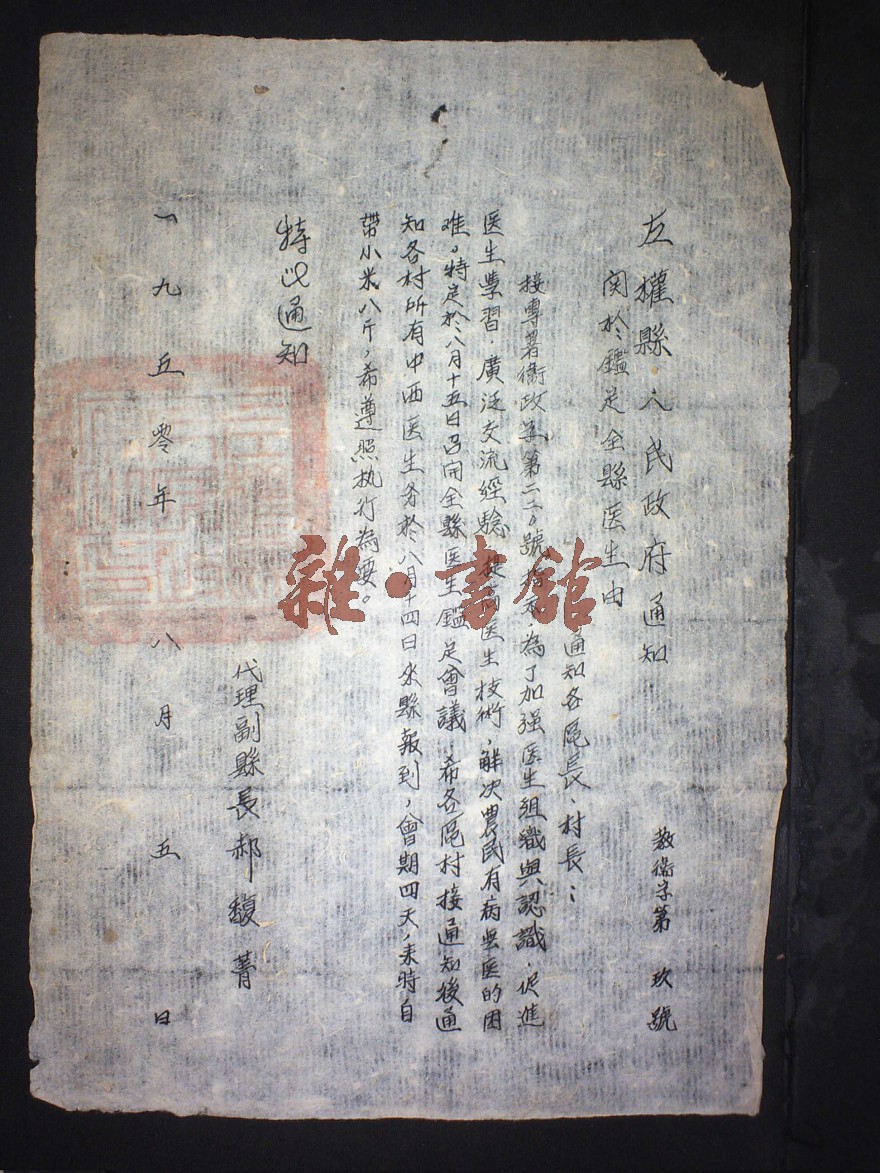 左權縣人民政府通知
教衛字第 玖號
関於鑑定全縣医生由
通知各區長、村長：
接專署衛政字第二二〇號指示，為了加强医生組織與認識，促進
医生學習，廣泛交流經驗，提高医生技術，解决農民有病無医的困
难。特定於八月十五日召開全縣医生鑑定會議，希各區村接通知後通
知各村所有中西医生务於八月十四日來縣報到，會期四天，來時自
帶小米八斤，希遵照执行為要。
特此通知
代理副縣長郝馥菁
一九五零年八月五日
雜·書館